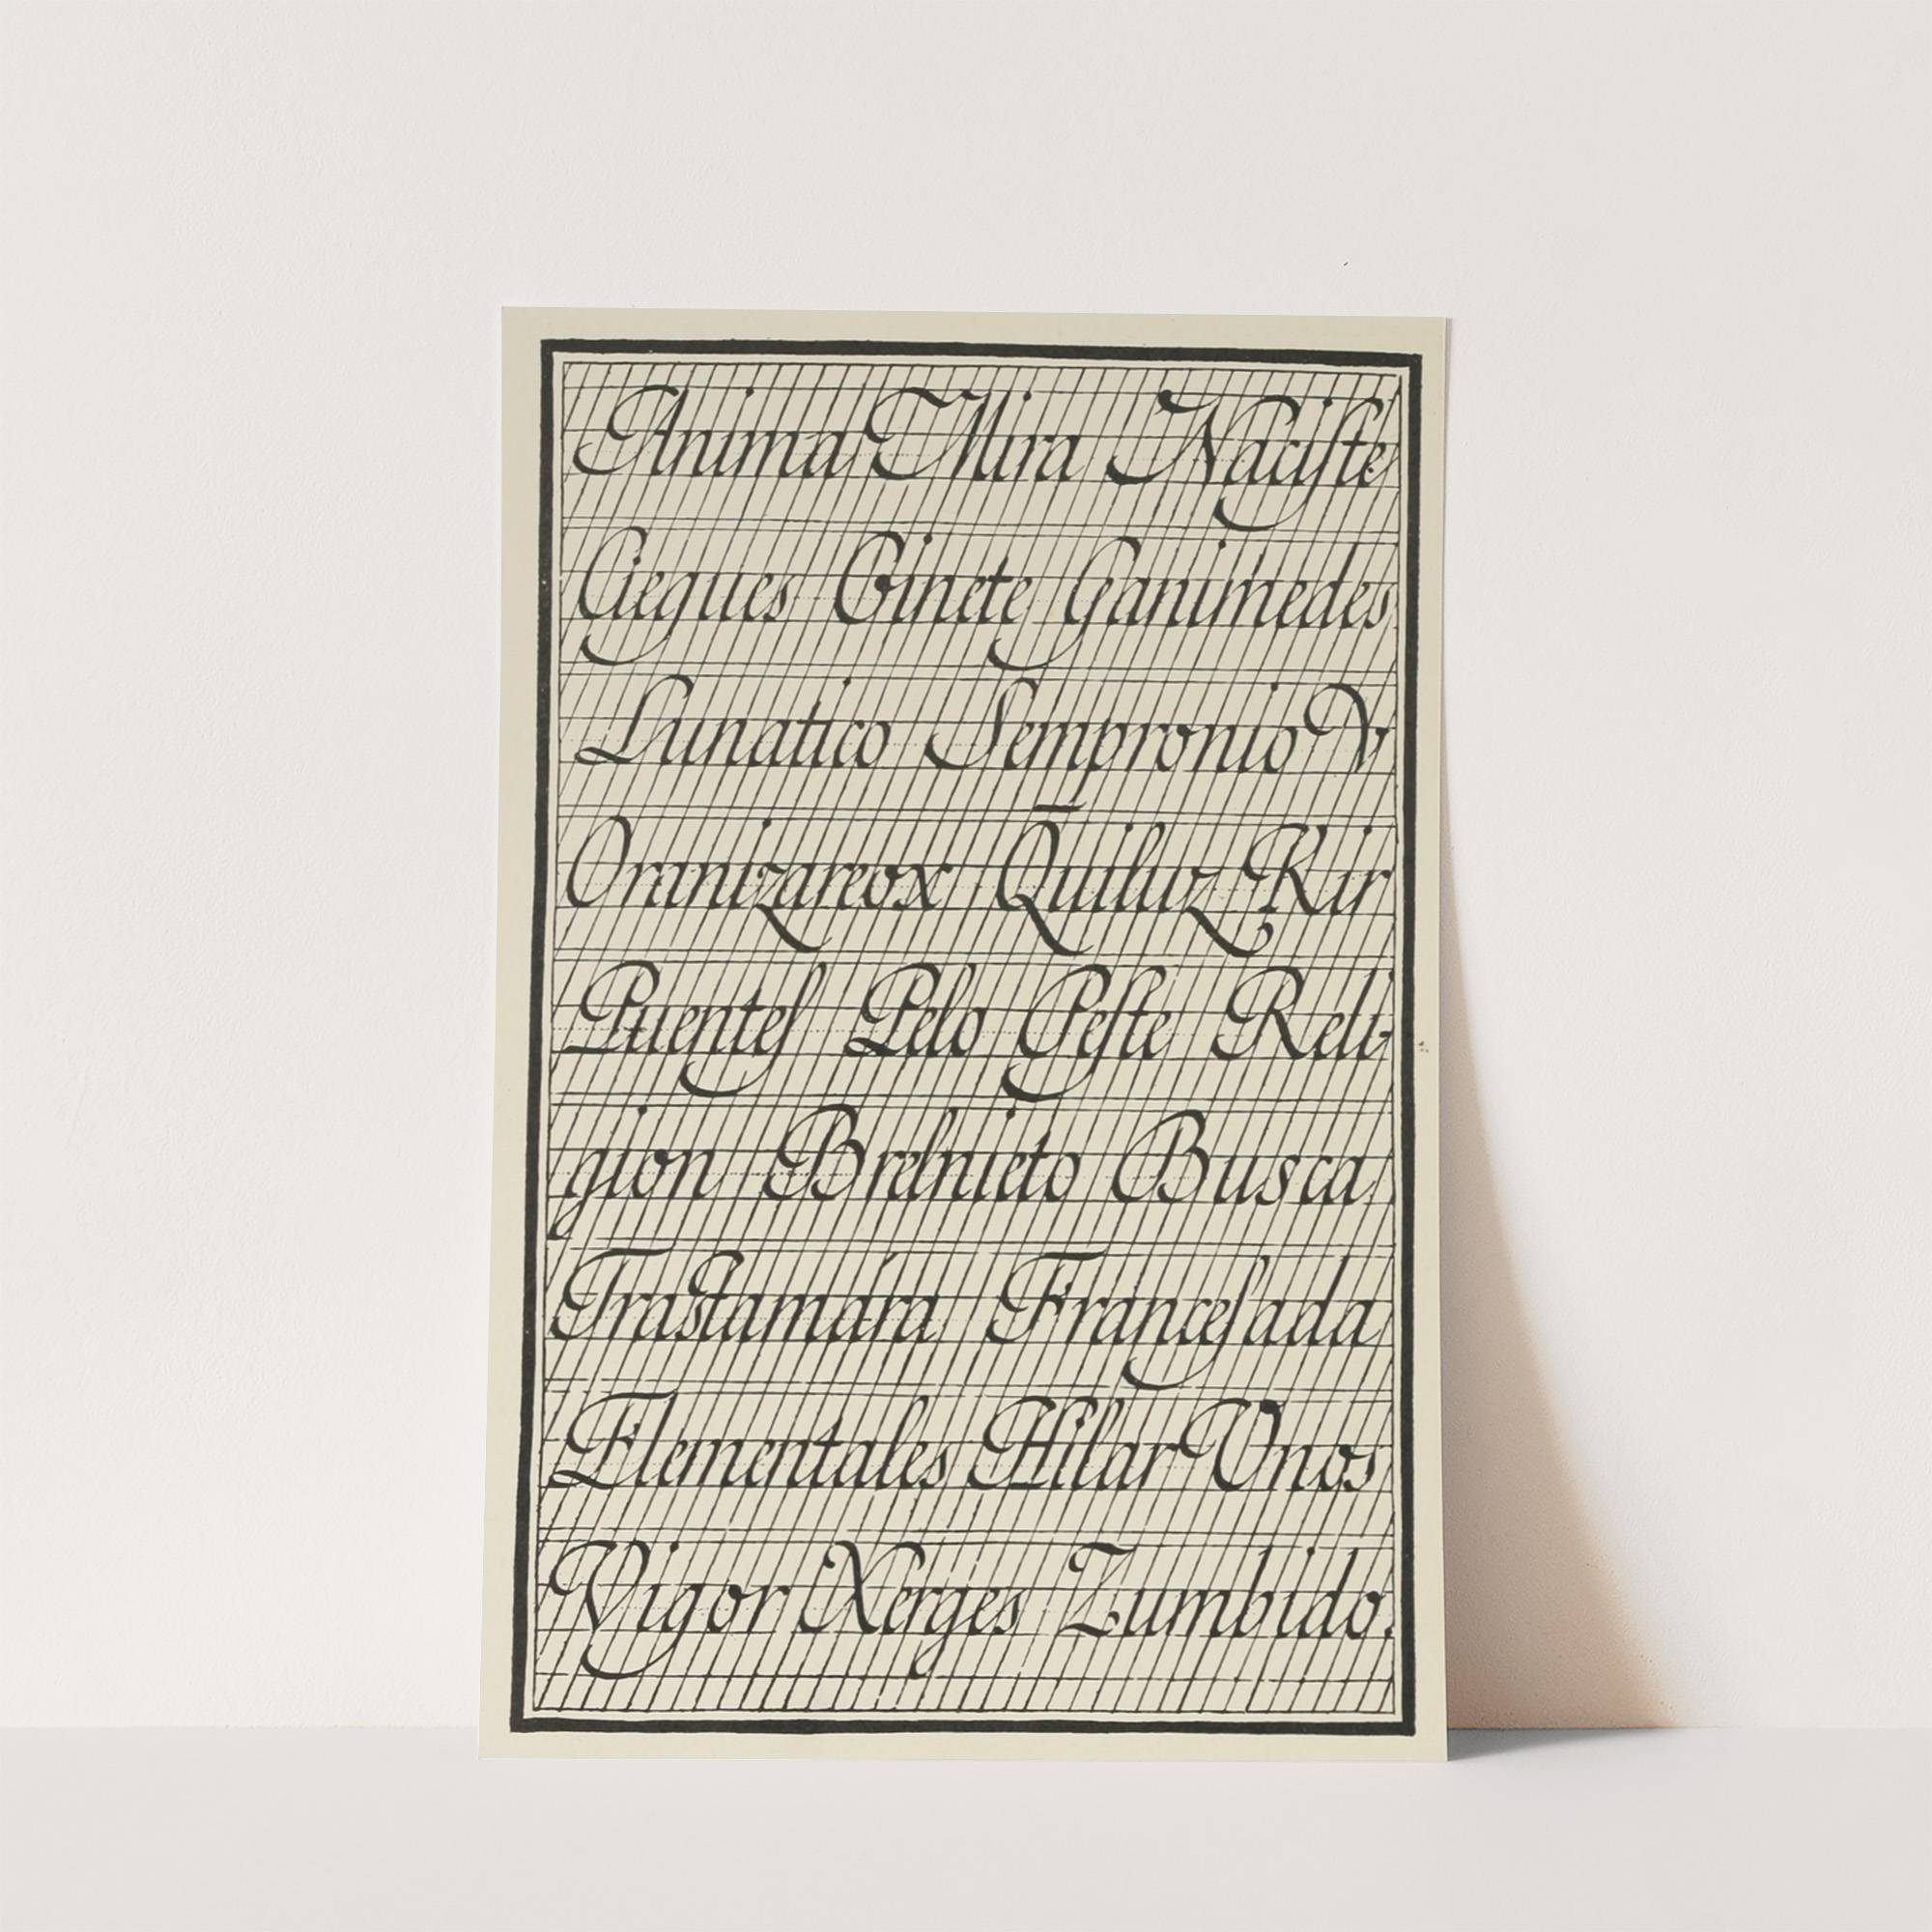 Anima Mira Naciſte
Giegues Ginete Ganimedes
Lunatico Sempronio V
Oranizareox Quiluz Kir
Puenteſ Pelo Peſte Reli-
gion Brelnieto Busca
Traſtamára Franceſada
Elementales Hilar Vnos
Vigor Xerges Zumbido.